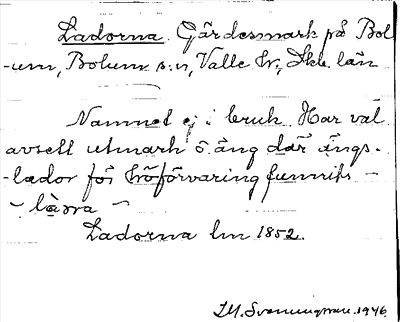 Ladorna. Gärdesmark på Bol-
-um, Bolums s:n, Valle hr, Skb. län
Namnet ej i bruk. Har väl
avsett utmark ö äng där ängs-
-lador för höförvaring funnits –
– la̤ɷra –
Ladorna lm 1852.
S.M. Svenungsson. 1946.